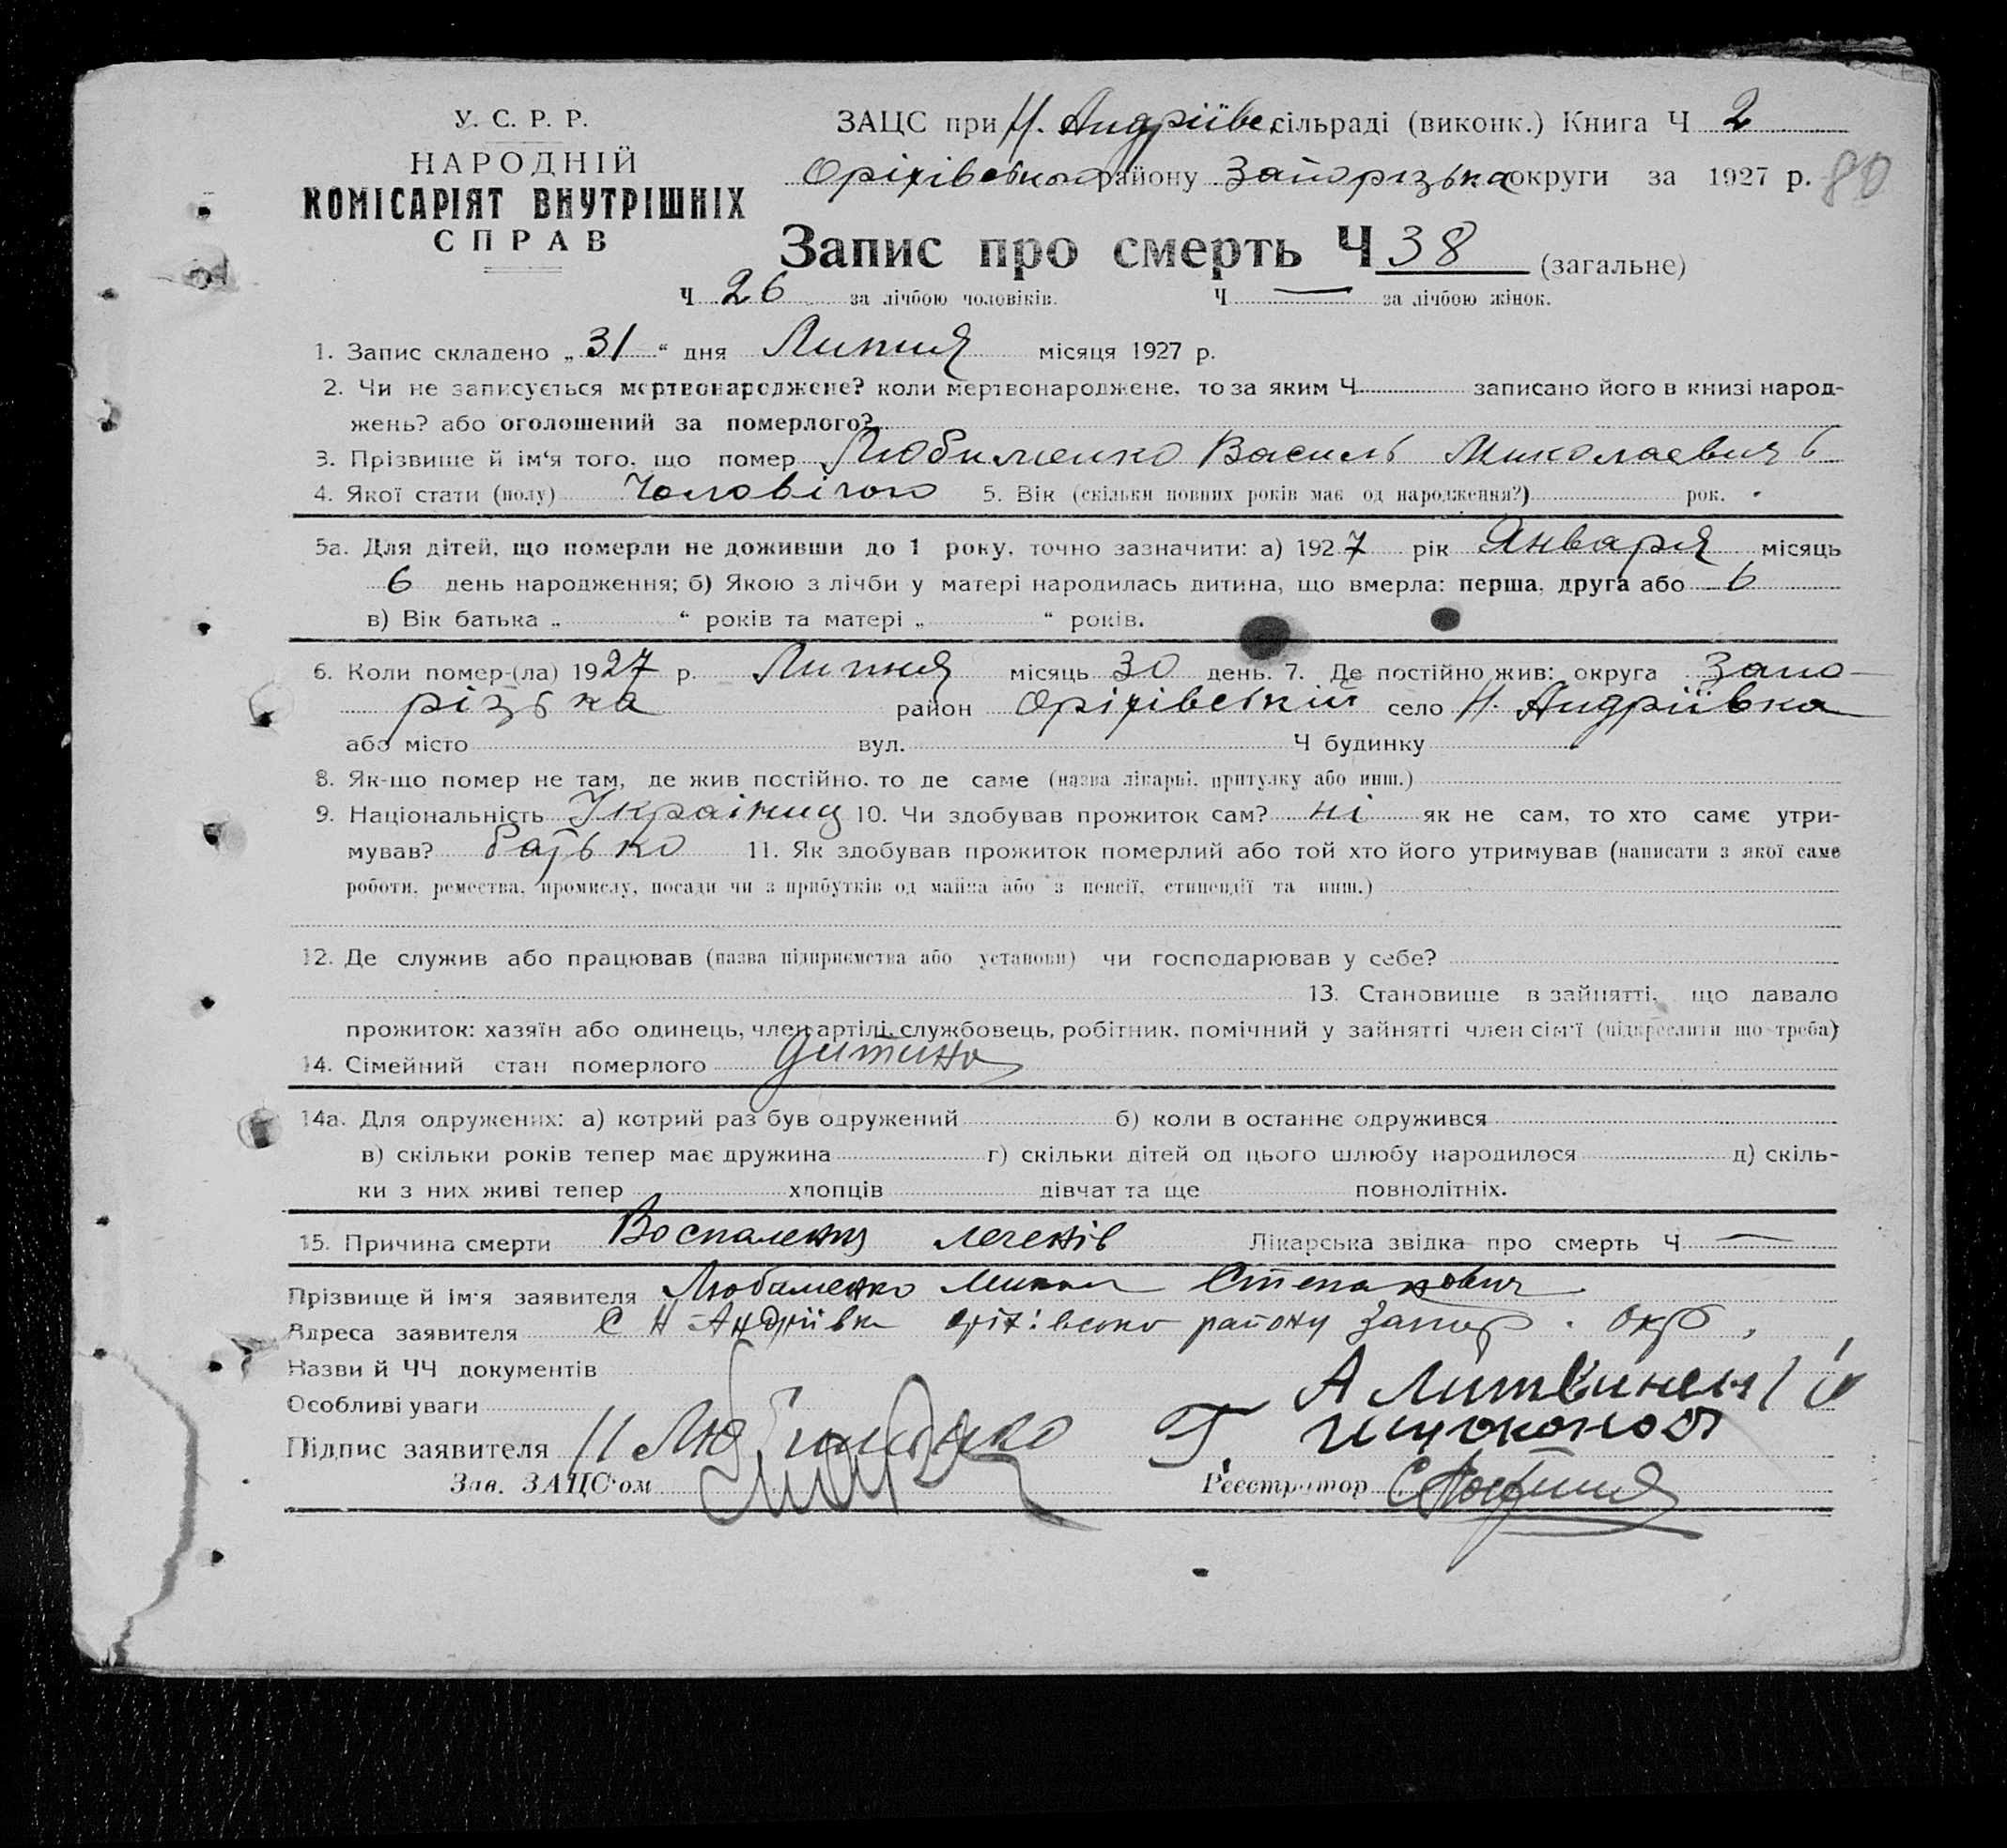 У. С. Р. Р.
НАРОДНІЙ
КОМІСАРІЯТ ВНУТРІШНІХ
СПРАВ
ЗАЦС при Н. Андріївс. сільраді (виконк.) Книга Ч 2
Оріхівського району Запорізька округи за 1927 р. 80
Запис про смерть Ч 38 (загальне)
Ч 26 за лічбою чоловіків. Ч — за лічбою жінок.
1. Запис складено „ 31 “ дня Липня місяця 1927 р.
2. Чи не записується мертвонароджене? коли мертвонароджене, то за яким Ч записано його в книзі народ-
жень? або оголошений за померлого?
3. Прізвище й ім'я того, що помер Любименко Василь Миколаевичь
4. Якої стати (полу) Чоловічого 5. Вік (скільки повних років має од народження?) рок.
5а. Для дітей, що померли не доживши до 1 року, точно зазначити: а) 1927 рік Января місяць
6 день народження; б) Якою з лічби у матері народилась дитина, що вмерла: перша, друга або 6
в) Вік батька „ “ років та матері „ “ років.
6. Коли помер-(ла) 1927 р. Липня місяць 30 день. 7. Де постійно жив: округа Запо-
різька район Оріхівский село Н. Андріївка
або місто вул. Ч будинку
8. Як-що помер не там, де жив постійно, то де саме (назва лікарні, притулку або инш.)
9. Національність Українц 10. Чи здобував прожиток сам? ні як не сам, то хто саме утри-
мував? батько 11. Як здобував прожиток померлий або той хто його утримував (написати з якої саме
роботи, ремества, промислу, посади чи з прибутків од майна або з пенсії, стипендії та инш.)
12. Де служив або працював (назва підприємства або установи) чи господарював у себе?
13. Становище в зайнятті, що давало
прожиток: хазяїн або одинець, член артілі, службовець, робітник, помічний у зайнятті член сім'ї (підкреслити що треба)
14. Сімейний стан померлого дитина
14а. Для одружених: а) котрий раз був одружений б) коли в останнє одружився
в) скільки років тепер має дружина г) скільки дітей од цього шлюбу народилося д) скіль-
ки з них живі тепер хлопців дівчат та ще повнолітніх.
15. Причина смерти Воспалення легенів Лікарська звідка про смерть Ч —
Прізвище й ім'я заявителя Любименко Микол Степанович
Адреса заявителя С Н Андріївка Оріхівсько району Запор. Окр,
Назви й ЧЧ документів
Особливі уваги
Підпис заявителя Н Любименко
Зав. ЗАЦС'ом Реєстратор